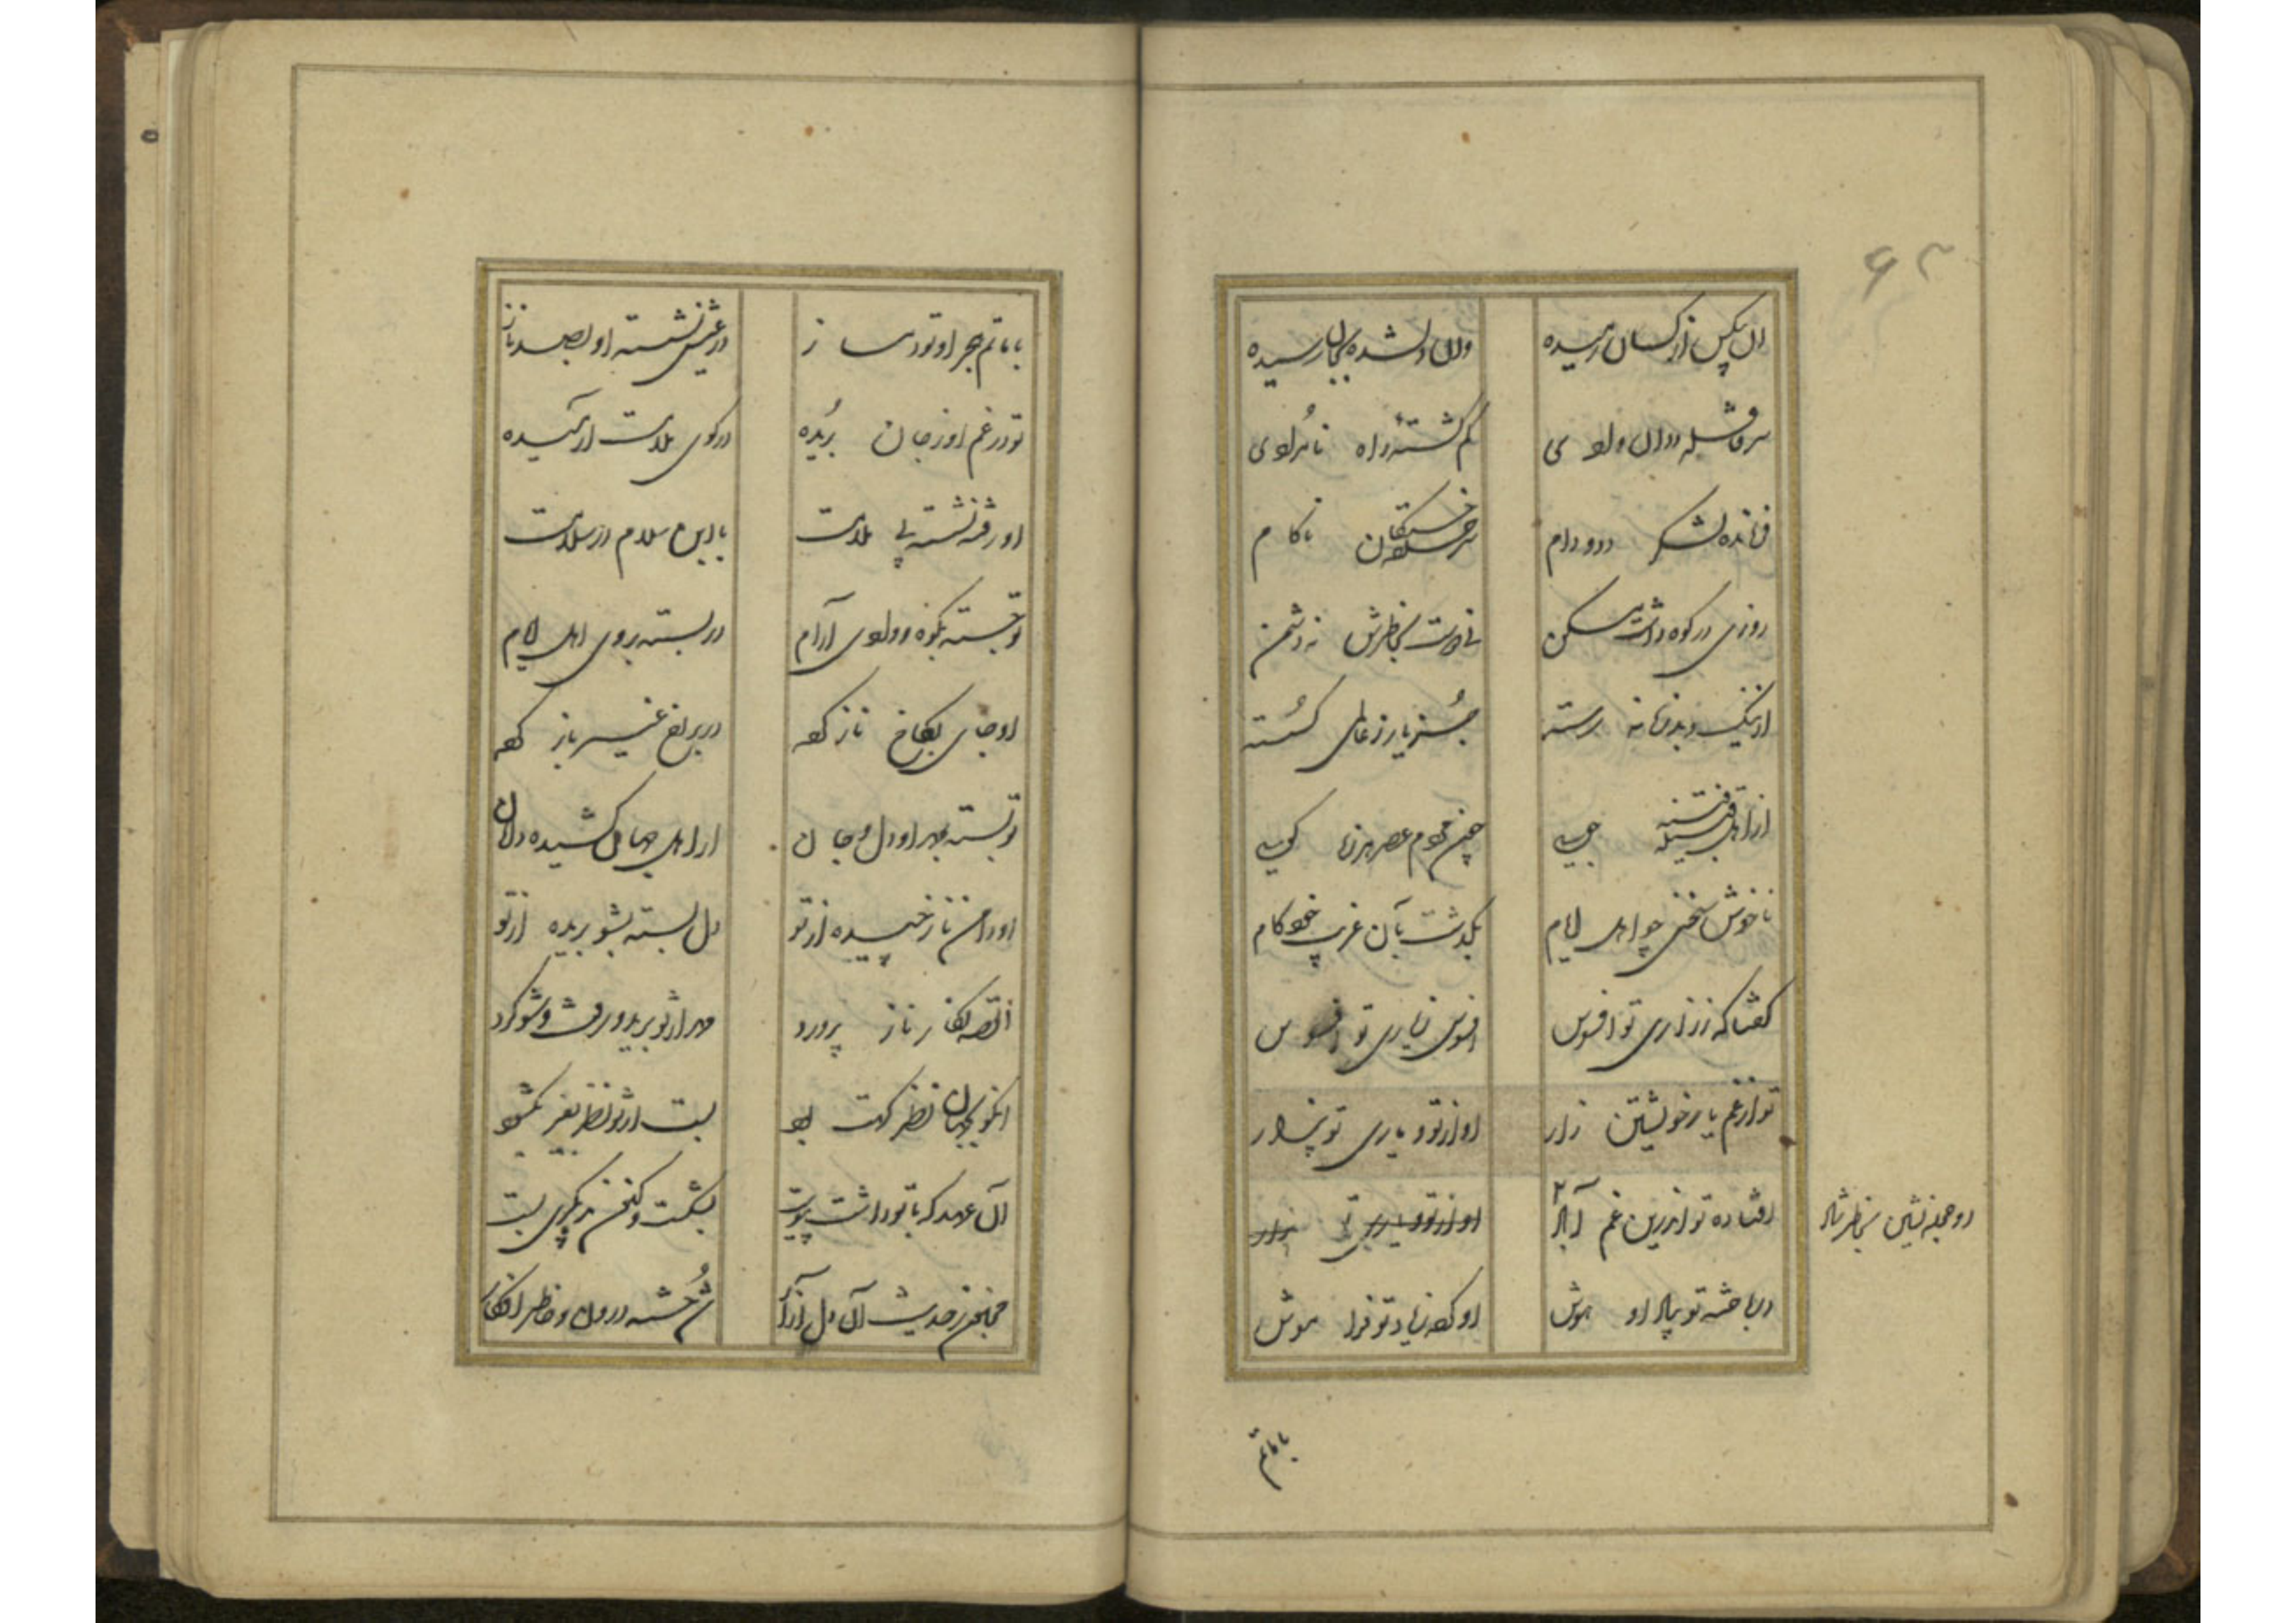 ۶۳
آن بیکس از کسان رمیده وان دلشده بجان رسیده
سرقافله روان وادی گم گشته راه نامرادی
فرمانده لشکر دد و دام سرخستکان ناکام
روزی در کوه داشت مسکن نی دوست بخاطرش نه دشمن
از نیک و بد زمانه رسته جز یار ز عالمی گسسته
از اهل قبیله فتنه جویی چون مردم عصر هرزه گویی
ناخوش سخنی چو اهل ایام بگذشت بآن غریب خودکام
گفتا که ز زاری تو افسوس افسوس ز یاری تو افسوس
تو از غم یار خویشتن زار او از تو و یاری تو بیزار
افتاده تو اندرین غم آباد او از تو و یاری تو بیزار
او حجله نشین بخاطر شاد
درباخته تو بیاد او هوش او کرده ز یاد تو فراموش
با ماتم
با ماتم هجر او تو دمساز در عیش نشسته او بصد ناز
تو در غم او ز جان بریده در کوی ملامت آرمیده
او رفته نشسته بی ملامت با ابن سلام در سلامت
تو جسته بکوه و وادی آرام در بسته بروی اهل ایام
او جای بکاخ ناز کرده در بر رخ غیر باز کرده
تو بسته بمهر او دل و جان از اهل جهان کشیده دامان
او دامن ناز چیده از تو دل بسته بشو بریده از تو
القصه نگار نازپرورد مهر از تو برید و رفت و شو کرد
آنکو بجهان نظر کهت بود بست از تو نظر بغیر بگشود
آن عهد که با تو داشت پیوست بشکست و کنون بدیگری بست
مجنون ز حدیث آن دل آزار شد خسته درون و خاطر افکار